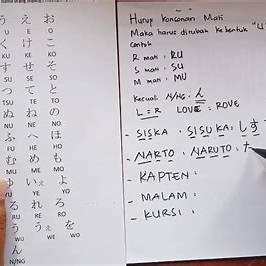 う え お
U E O
く け こ
KU KE KO
す せ そ
SU SE SO
つ て と
TSU TE TO
ぬ ね の
NU NE NO
ふ へ ほ
FU HE HO
む め も
MU ME MO
ゆ いぇ よ
YU YE YO
る れ ろ
RU RE RO
う うぇ を
WU WE WO
ん
N/NG
Huruf Konsonan Mati
Maka harus dirubah ke bentuk "U"
contoh
R mati : RU
S mati : SU
M mati : MU
Kecuali N/NG : ん
L = R LOVE : ROVE
- SISKA : SISUKA : しす
- NARTO : NARUTO : ナ
- KAPTEN :
- MALAM :
- KURSI :